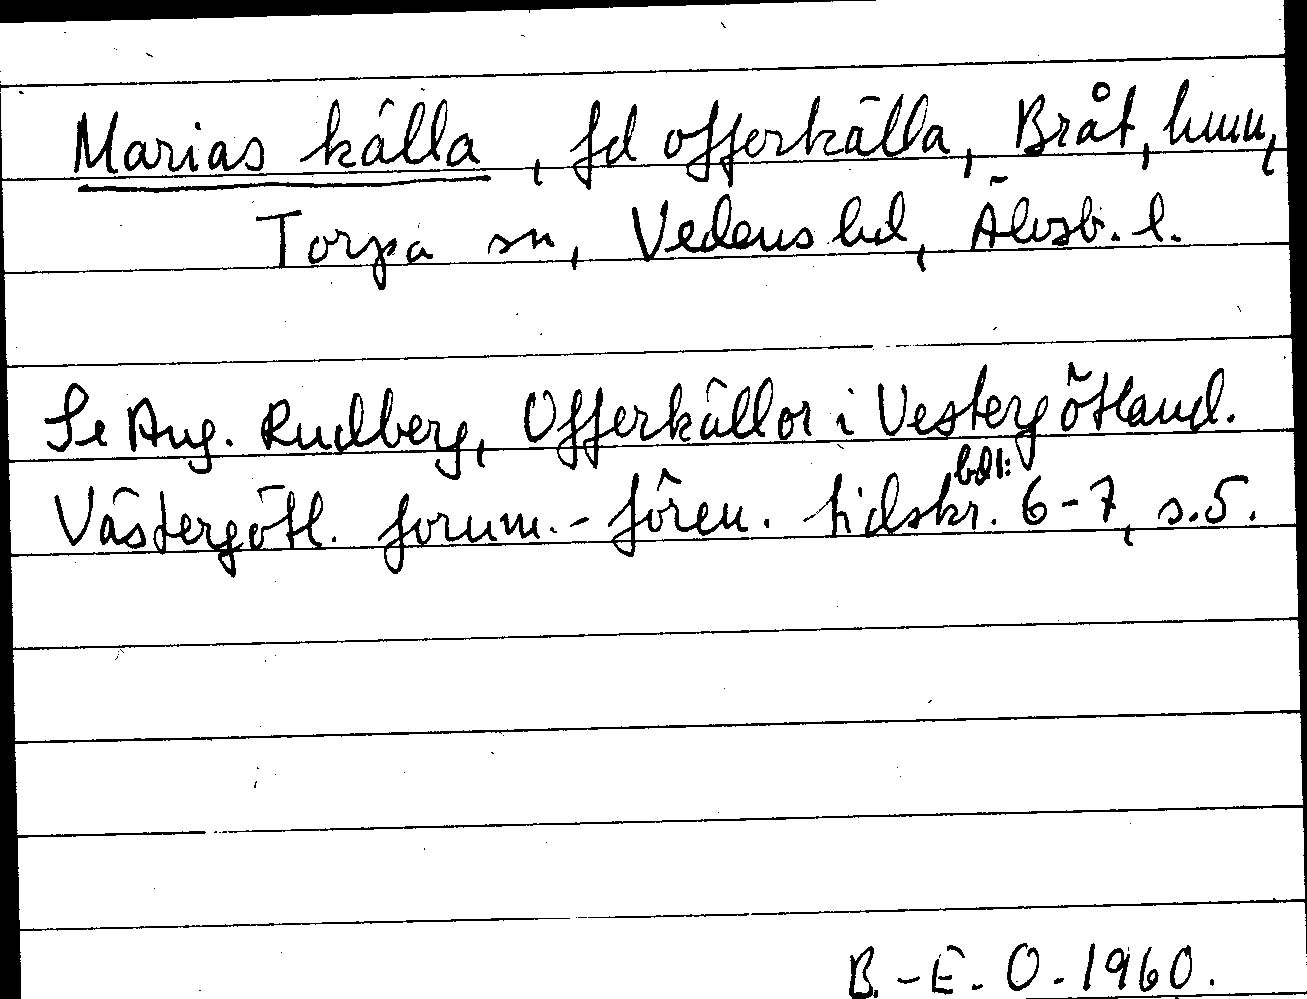 Marias källa, fd offerkälla, Bråt, hmn,
Torpa sn, Vedens hd, Älvsb. l.
Se Aug. Rudberg, Offerkällor i Vestergötland.
Västergötl. fornm.-fören. tidskr. bd 1: 6-7, s. 5.
B.-E. O. 1960.